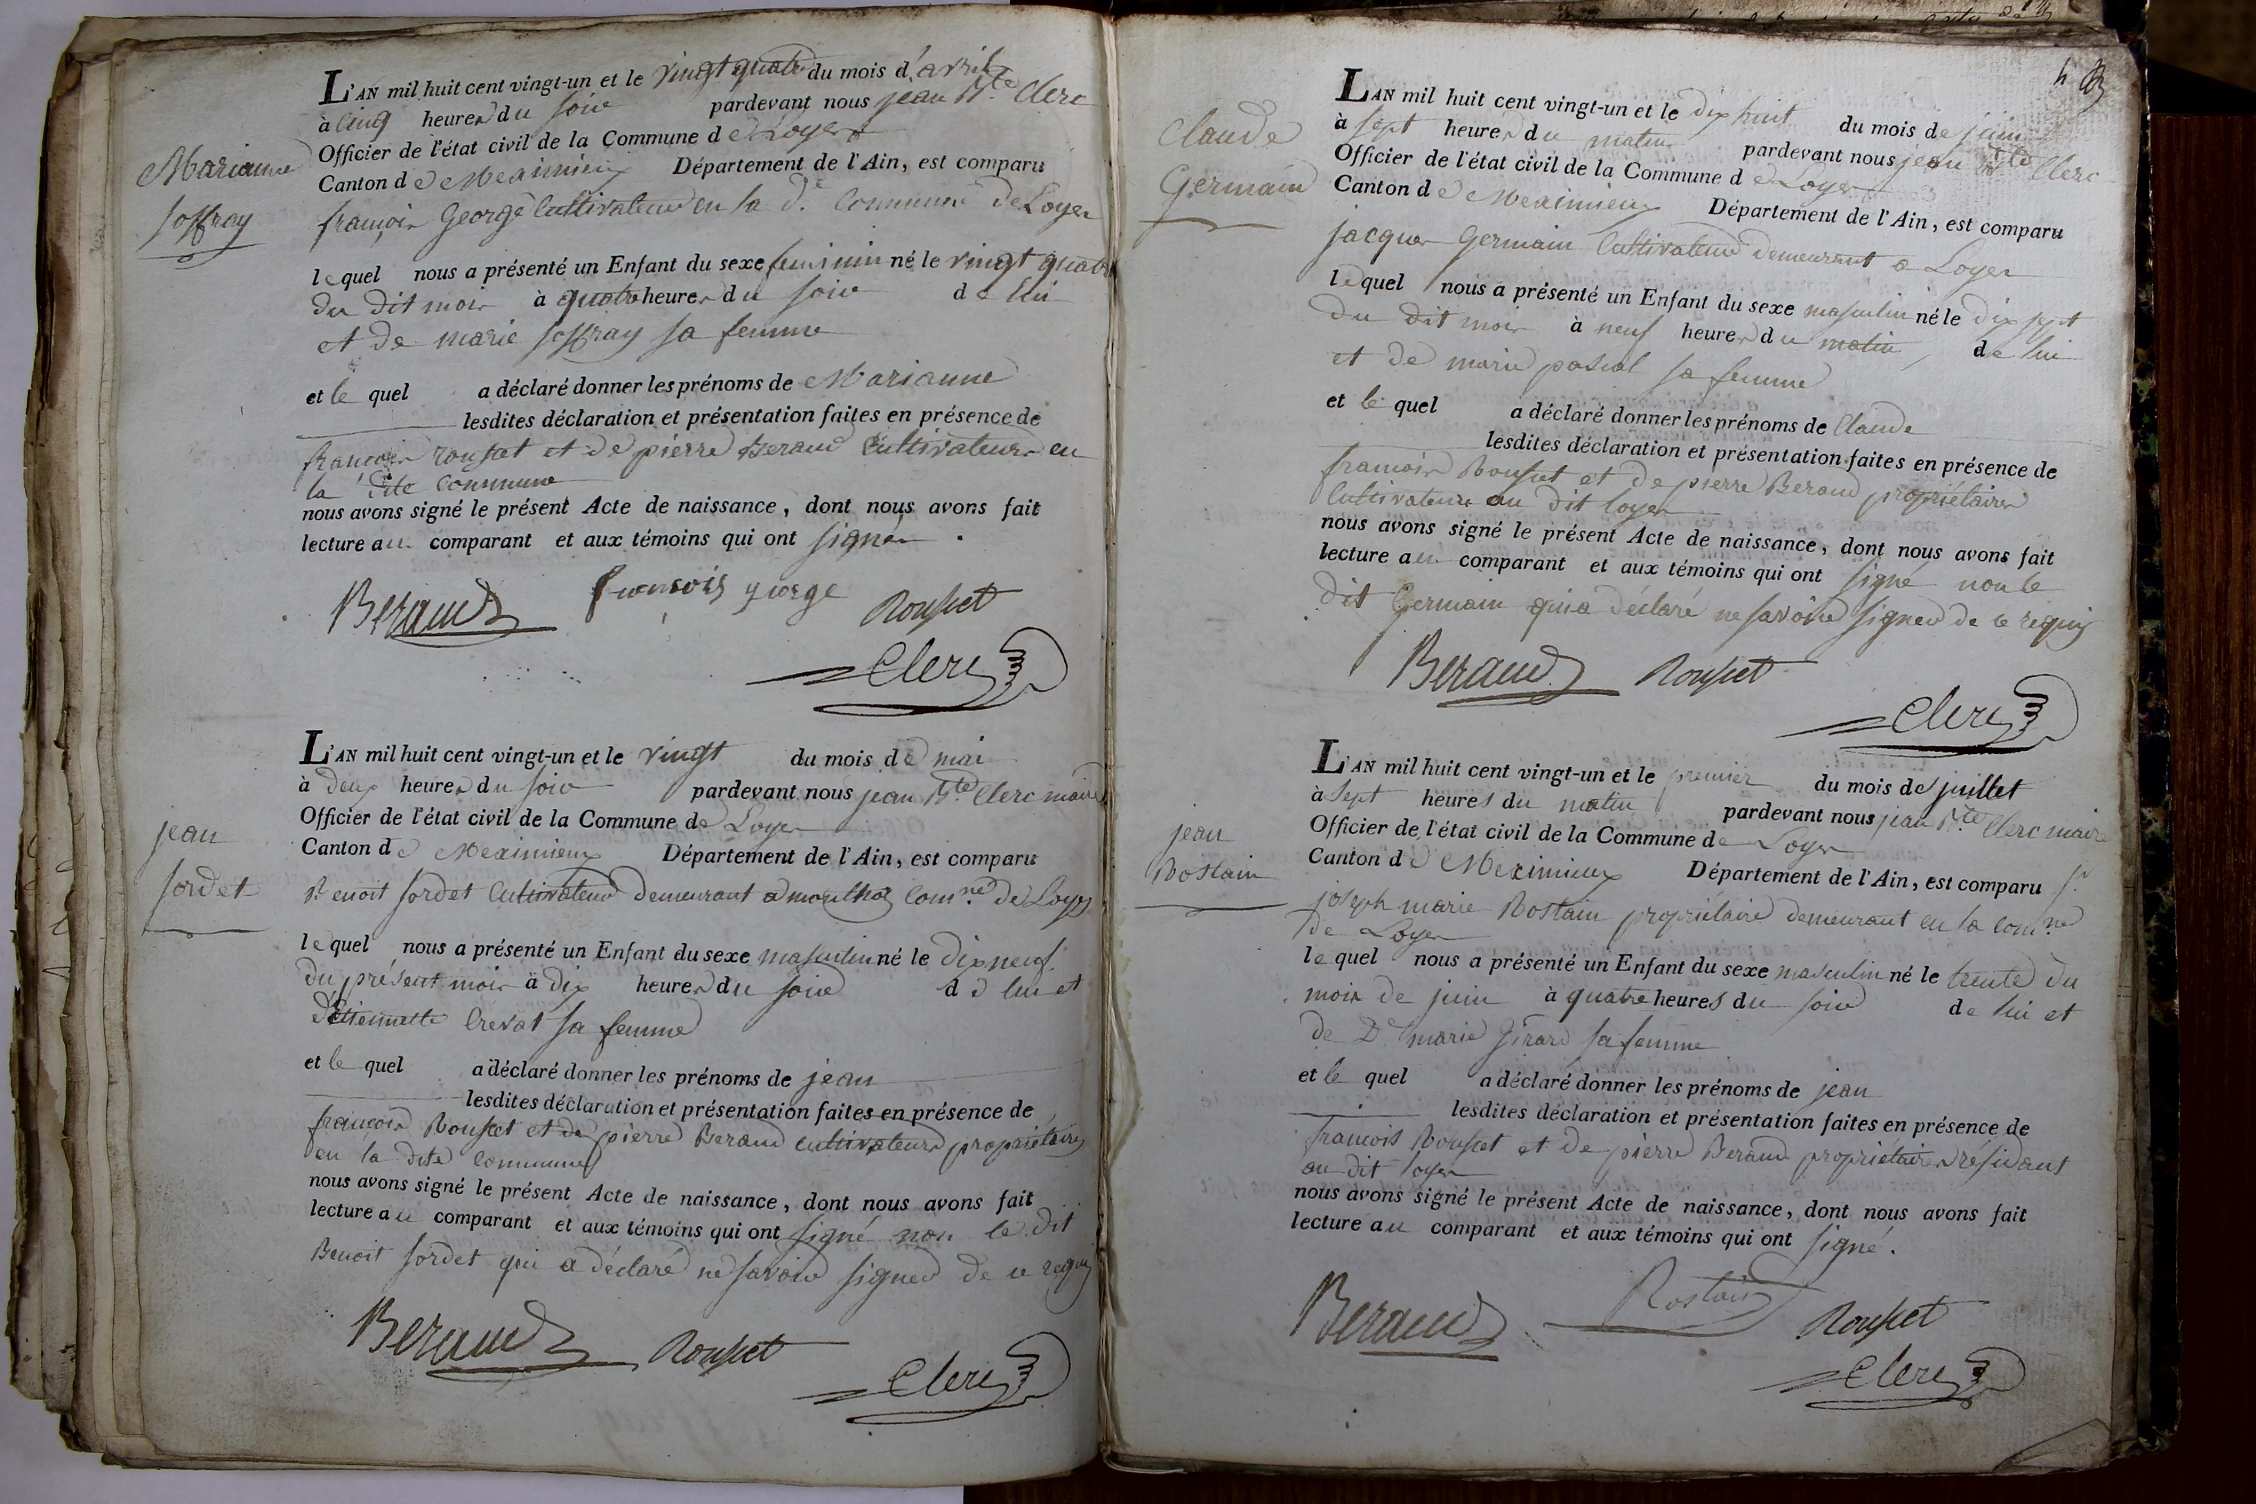 Marianne
Joffray
L'AN mil huit cent vingt-un et le vingt quatre du mois d'avril
à cinq heures du soir pardevant nous jean Bte Clerc
Officier de l'état civil de la Commune de Loyes
Canton de Meximieux Département de l'Ain, est comparu
françois George Cultivateur en la de. Commune de Loyes
lequel nous a présenté un Enfant du sexe feminin né le vingt quatre
du dit mois à quatre heures du soir de lui
et de marie joffray sa femme
et le quel a déclaré donner les prénoms de Marianne
lesdites déclaration et présentation faites en présence de
françois rousset et de pierre Beraud Cultivateurs en
la dite commune
nous avons signé le présent Acte de naissance, dont nous avons fait
lecture au comparant et aux témoins qui ont signés.
Beraud françois george Rousset
Clerc
jean
sordet
L'AN mil huit cent vingt-un et le vingt du mois de mai
à deux heures du soir pardevant nous jean Bte Clerc maire
Officier de l'état civil de la Commune de Loyes
Canton de Meximieux Département de l'Ain, est comparu
Benoit sordet Cultivateur demeurant a monthoz Comne. de Loyes
lequel nous a présenté un Enfant du sexe masculin né le dix neuf
du présent mois à dix heures du soir de lui et
d'Etiennette Crevat sa femme
et le quel a déclaré donner les prénoms de jean
lesdites déclaration et présentation faites en présence de
françois Rousset et de pierre Beraud cultivateurs propriétaires
en la dite commune
nous avons signé le présent Acte de naissance, dont nous avons fait
lecture au comparant et aux témoins qui ont signé non le dit
Benoit sordet qui a déclaré ne savoir signer de ce requis
Beraud Rousset
Clerc
4
Claude
Germain
L'AN mil huit cent vingt-un et le dix huit du mois de juin
à sept heures du matin pardevant nous jean Bte Clerc
Officier de l'état civil de la Commune de Loyes
Canton de Meximieux Département de l'Ain, est comparu
jacques Germain Cultivateur demeurant a Loyes
lequel nous a présenté un Enfant du sexe masculin né le dix sept
du dit mois à neuf heures du matin, de lui
et de marie pascal sa femme
et le quel a déclaré donner les prénoms de Claude
lesdites déclaration et présentation faites en présence de
francois Rousset et de pierre Beraud propriétaires
Cultivateurs au dit loyes
nous avons signé le présent Acte de naissance, dont nous avons fait
lecture au comparant et aux témoins qui ont signé non le
dit Germain qui a déclaré ne savoir signer de ce requis
Beraud Rousset
Clerc
jean
Rostain
L'AN mil huit cent vingt-un et le premier du mois de juillet
à sept heures du matin pardevant nous jean Bte Clerc maire
Officier de l'état civil de la Commune de Loyes
Canton de Meximieux Département de l'Ain, est comparu sr
joseph marie Rostain propriétaire demeurant en la comne
de Loyes
lequel nous a présenté un Enfant du sexe masculin né le trente du
mois de juin à quatre heures du soir de lui et
de De marie Girard sa femme
et le quel a déclaré donner les prénoms de jean
lesdites déclaration et présentation faites en présence de
francois Rousset et de pierre Beraud propriétaires résidant
au dit loyes
nous avons signé le présent Acte de naissance, dont nous avons fait
lecture au comparant et aux témoins qui ont signé.
Beraud Rostain Rousset
Clerc